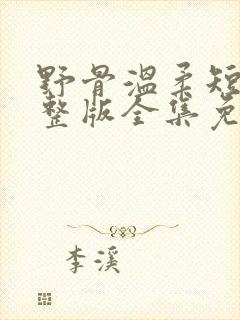 野骨温柔短
整版全集免
李溪